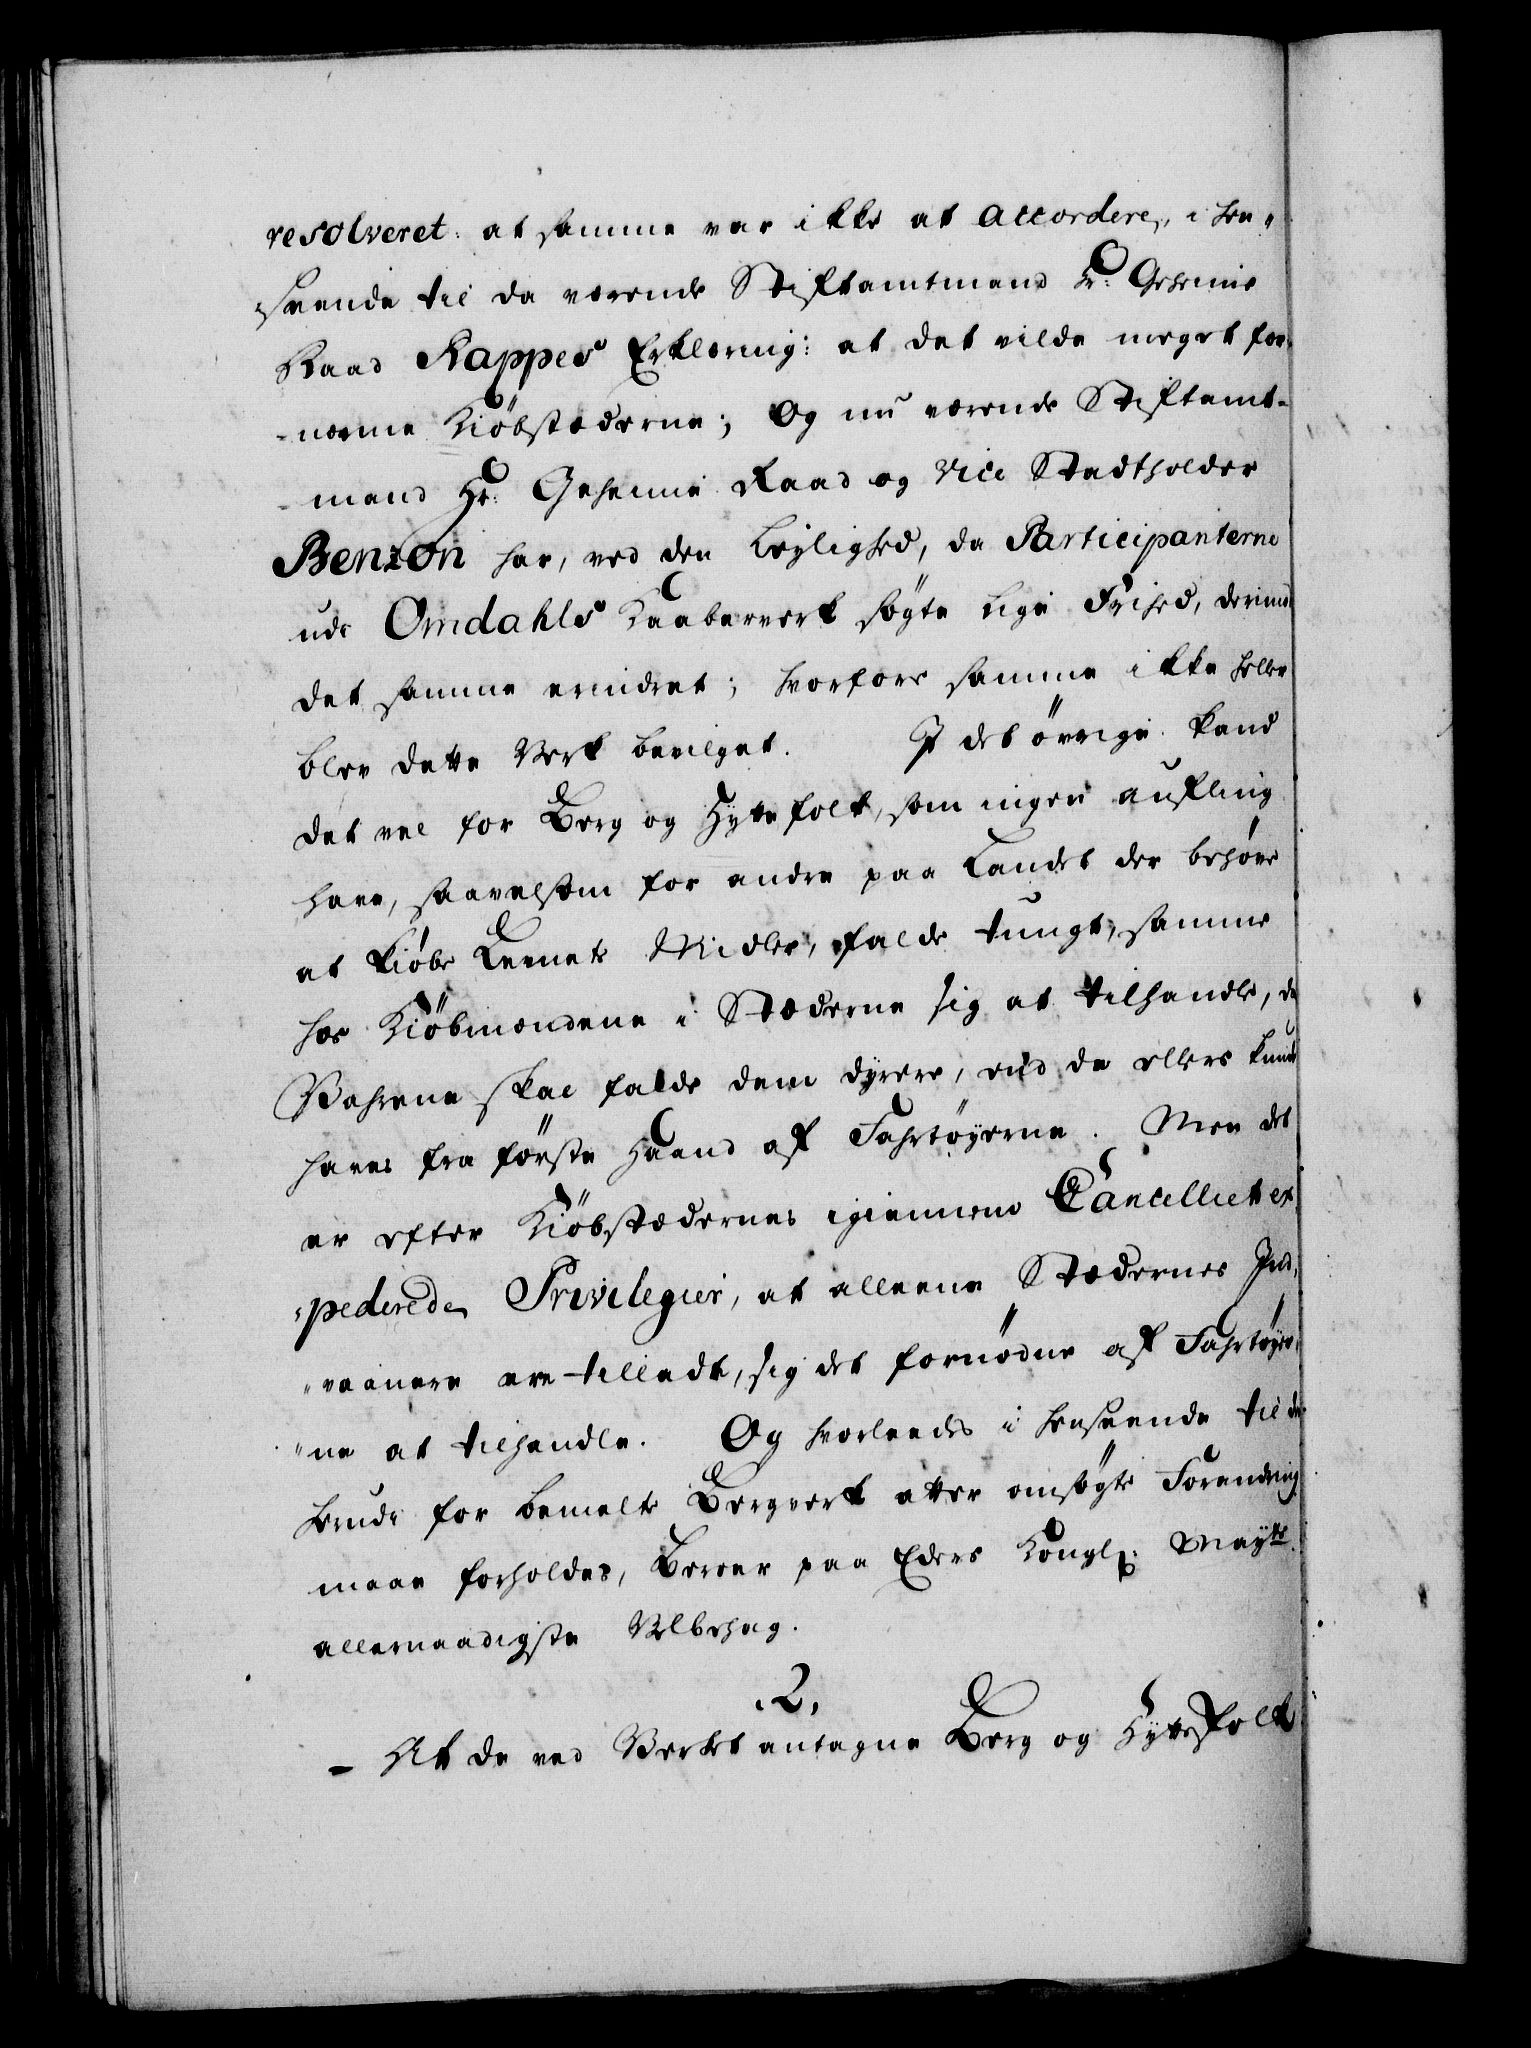 resolveret: at samme var ikke at accordere, i hen-
-seende til da værende Stiftamtmand Hr: Geheime
Raad Rappes Erklæring: at det vilde meget for-
-nærme Kiöbstæderne; Og nu værende Stiftamt-
-mand Hr: Geheime Raad og Vice Stadtholder
Benzon har, ved den Leylighed, da Participanterne
udi Omdahls Kaaberverk søgte lige Frihed, derimod
det samme erindret; hvorfore samme ikke heller
blev dette Verk bevilget. I det øvrige kand
det vel for Berg og Hytte folk, som ingen aufling
have, saavelsom for andre paa Landet der behøve
at kiöbe Levnets Midler, falde tungt, samme
hos Kiöbmændene i Stæderne sig at tilhandle, da
Vahrene skal falde dem dyrere, end de ellers kunde
haves fra første Haand af Fahrtøyerne. Men det
er efter Kiöbstædernes igiennem Cancelliet ex-
-pederede Privilegier, at alleene Stædernes Ind-
-vaanere ere tilladt, sig det fornødne af Fahrtøyer-
-ne at tilhandle. Og hvorleedes i henseende til de
herudi for bemelte Bergverk atter omsøgte Forandring
maae forholdes, Beroer paa Eders Kongl: Mayts
allernaadigste Velbehag.
.2,
- At de ved Verket antagne Berg og Hyttefolk